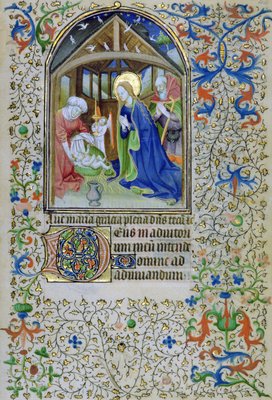 Aue maria gracia plena dns
Deus in adiutori
um meū intende
Domine ad
adiuuandum